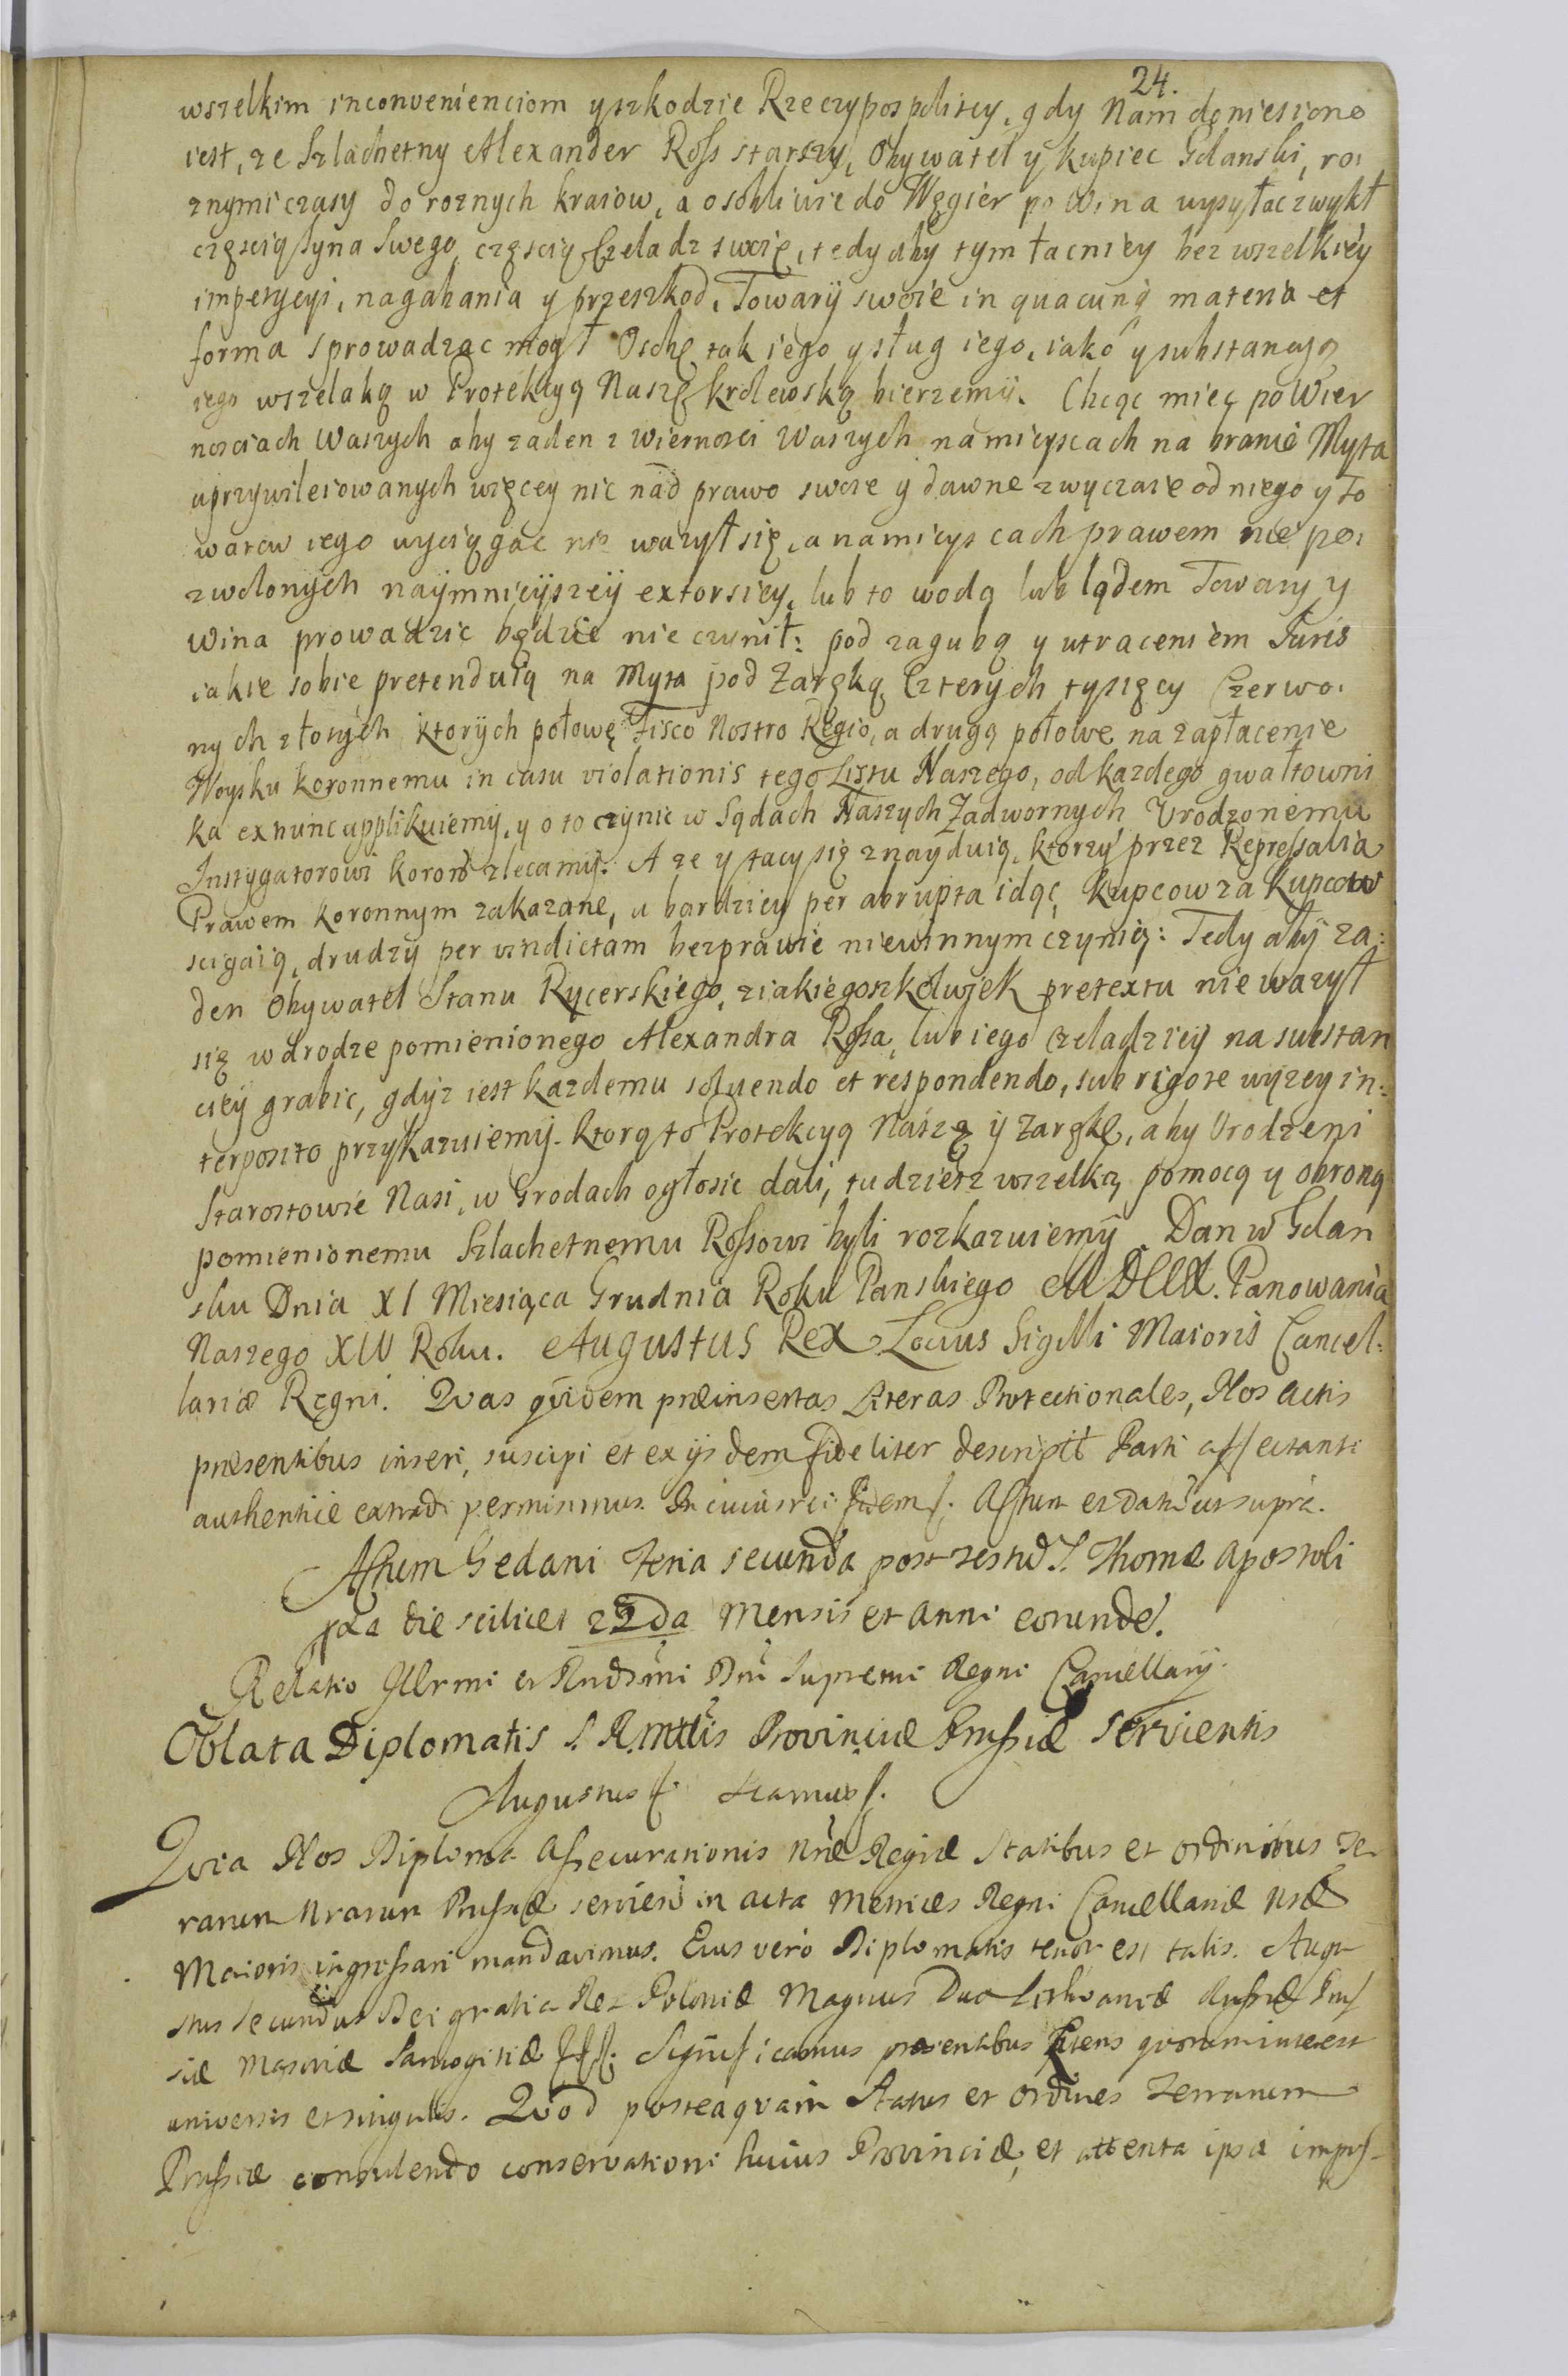 24.
wszelkim inconvenienciom y szkodzie Rzeczypospolitey, gdy Nam doniesiono
iest, ze Szlachetny Alexander Ross starszy, Obywatel y kupiec Gdanski, ro:
znymi czasy do roznych kraiow, a osobliwie do Węgier po Wina wysyłac zwykł
częscią Syna Swego, częscią Czeladz swoię, tedy aby tym łacniey bez wszelkiey
impetycyi, nagabania y przeszkod, Towary swoie in quacunq materia et
forma sprowadzac mogł Osobę tak iego y sług iego, iako y substancyą
iego wszelaką w Protekcyą Naszę krolewską bierzemy. Chcąc miec po Wier
nosciach Waszych aby zaden z Wiernosci Waszych na mieyscach na branie Myta
uprzywileiowanych więcey nic nad prawo swoie y dawne zwyczaie od niego y To
warow iego wyciągac nie wazył się, a na mieyscach prawem nie po:
zwolonych naymnieyszey extorsiey, lub to wodą lub lądem Towary y
Wina prowadzic będzie nie czynił: pod zagubą y utraceniem Iuris
iakie sobie pretenduią na Myta pod Zaręką Czterych tysięcy Czerwo:
nych złotych ktorych połowę Fisco Nostro Regio, a drugą połowe na zapłacenie
Woysku koronnemu in casu violationis tego Listu Naszego, od kazdego gwałtowni
ka exnunc applikuiemy, y o to czynic w Sądach Naszych Zadwornych Vrodzonemu
Instygatorowi Koron zlecamy. A ze y tacy się znayduią, ktorzy przez Repressalia
Prawem koronnym zakazane, a bardziey per abrupta idąc, kupcow za kupcow
scigaią, drudzy per vindictam bezprawie niewinnym czynią: Tedy aby za:
den Obywatel Stanu Rycerskiego, z iakiegoszkolwiek pretextu nie wazył
się w drodze pomienionego Alexandra Rossa, lub iego czeladziey na substan
cyey grabic, gdyz iest kazdemu solvendo et respondendo, sub rigore wyzey in:
terposito przykazuiemy. Ktorą to Protekcyą Naszą y Zarękę, aby Vrodzeni
Starostowie Nasi, w Grodach ogłosic dali, tudziesz wszelką pomocą y obroną
pomienionemu Szlachetnemu Rossowi byli rozkazuiemy. Dan w Gdan
sku Dnia XI Miesiąca Grudnia Roku Panskiego Panowania
Naszego XIV Roku. Augustus Rex Locus Sigilli Maioris Cancel:
lariæ Regni. Quas quidem præinsertas Literas Protectionales, Nos actis
præsentibus inseri, suscipi et ex ijsdem fideliter descriptt Parti affectanti
authentice extradi permisimus. In cuius rei fidem f. Actum et datu ut supra.
Actum Gedani Feria secunda post festu S. Thomæ Apostoli
die scilicet 22da Mensis et Anni eorunde.
Relatio Illrmi et Rndsmi Dni Supremi Regni Cancellarij.
Oblata Diplomatis S. R. Mttis Provinciæ Prussiæ servientis
Augustus f.
Quia Nos Diploma Assecurationis Nræ Regiæ Statibus et Ordinibus Te
rrarum Nrarum Prussiæ servien in acta Metrices Regni Cancellariæ Nræ
Maioris ingrossari mandavimus. Eius vero Diplomatis tenor est talis. Augu
stus Secundus Dei gratia Rex Poloniæ Magnus Dux Lithvaniæ Russiæ Prus
siæ Masoviæ Samogitiæ Significamus præsentibus Literis quorum interest
universis et singulis. Quod posteaquam Status et Ordines Terrarum
Prussiæ consulendo conservationi huius Provinciæ, et attenta ipsa